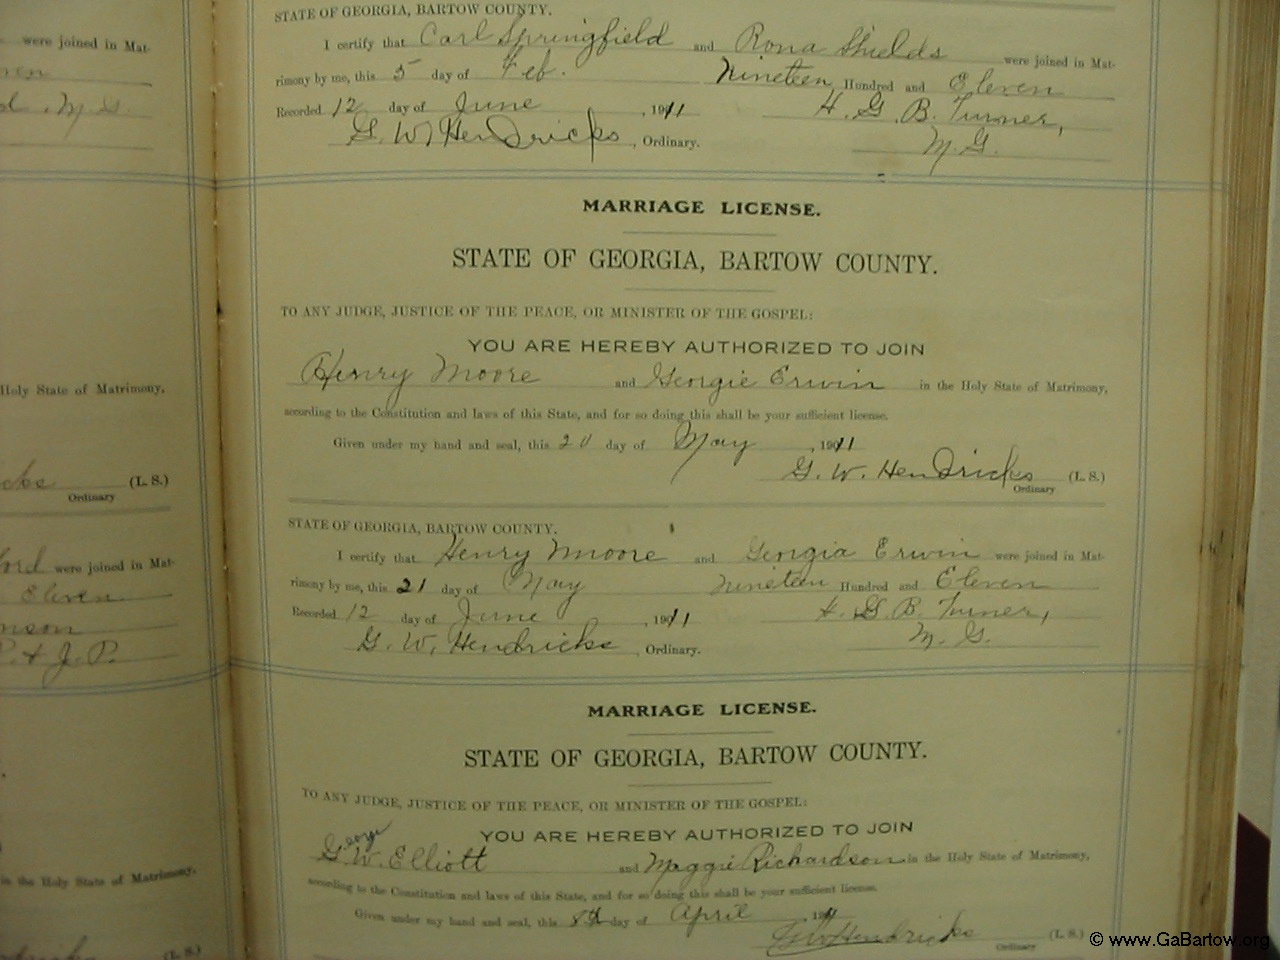 STATE OF GEORGIA, BARTOW COUNTY.
I certify that Carl Springfield and Rona Shields were joined in Mat-
rimony by me, this 5 day of Feb. Nineteen Hundred and Eleven
Recorded 12 day of June, 1911 H. G. B. Turner,
G. W. Hendricks, Ordinary. M. G.
MARRIAGE LICENSE.
STATE OF GEORGIA, BARTOW COUNTY.
TO ANY JUDGE, JUSTICE OF THE PEACE, OR MINISTER OF THE GOSPEL:
YOU ARE HEREBY AUTHORIZED TO JOIN
Henry Moore and Georgie Erwin in the Holy State of Matrimony,
according to the Constitution and laws of this State, and for so doing this shall be your sufficient license.
Given under my hand and seal, this 20 day of May, 1911
G. W. Hendricks (L. S.)
Ordinary
STATE OF GEORGIA, BARTOW COUNTY.
I certify that Henry Moore and Georgia Erwin were joined in Mat-
rimony by me, this 21 day of May Nineteen Hundred and Eleven
Recorded 12 day of June, 1911 H. G. B. Turner,
G. W. Hendricks, Ordinary. M. G.
MARRIAGE LICENSE.
STATE OF GEORGIA, BARTOW COUNTY.
TO ANY JUDGE, JUSTICE OF THE PEACE, OR MINISTER OF THE GOSPEL:
YOU ARE HEREBY AUTHORIZED TO JOIN
George
G. W. Elliott and Maggie Richardson in the Holy State of Matrimony,
according to the Constitution and laws of this State, and for so doing this shall be your sufficient license.
Given under my hand and seal, this 8th day of April, 1911
GW Hendricks (L. S.)
Ordinary
were joined in Mat-
M. G.
Holy State of Matrimony,
(L. S.)
Ordinary
were joined in Mat-
Eleven
P. & J. P.
in the Holy State of Matrimony,
(L. S.)
© www.GaBartow.org